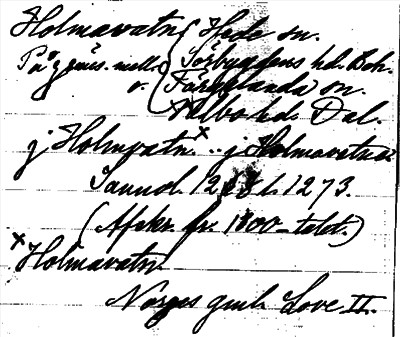 Holmavatn Hede sn.
På gräns. mell. Sörbygdens hd. Boh.
o. Färgelanda sn.
Valbo hd. Dal.
j Holmvatn.x .. j Holmavatn
Sannol. 1268 l. 1273.
(Afskr. fr. 1800-talet.)
x Holmavatn.
Norges gml. Love II.